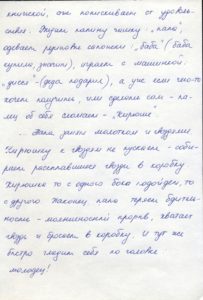 книжкой, аж попискивает от удоволь-
ствия. Жадин папину чашку - "папа",
одевает резиновые сапожки - "баба" (баба
купила, значит), играет с машинкой -
"диси" - (деда подарил), а уж если что-то
хочет получить, или сделать сам - са-
му об себе сообщает - "Кирюше"
... Папа занят молотком и гвоздями
Кирюшку к гвоздям не пускает - соби-
рает рассыпавшиеся гвозди в коробку
Кирюша то с одного бока подойдет, то
с другого. Наконец папа теряет бдитель-
ность - молниеносный прорыв, хватает
гвозди и бросает в коробку. И тут же
быстро гладит себя по головке -
молодец!